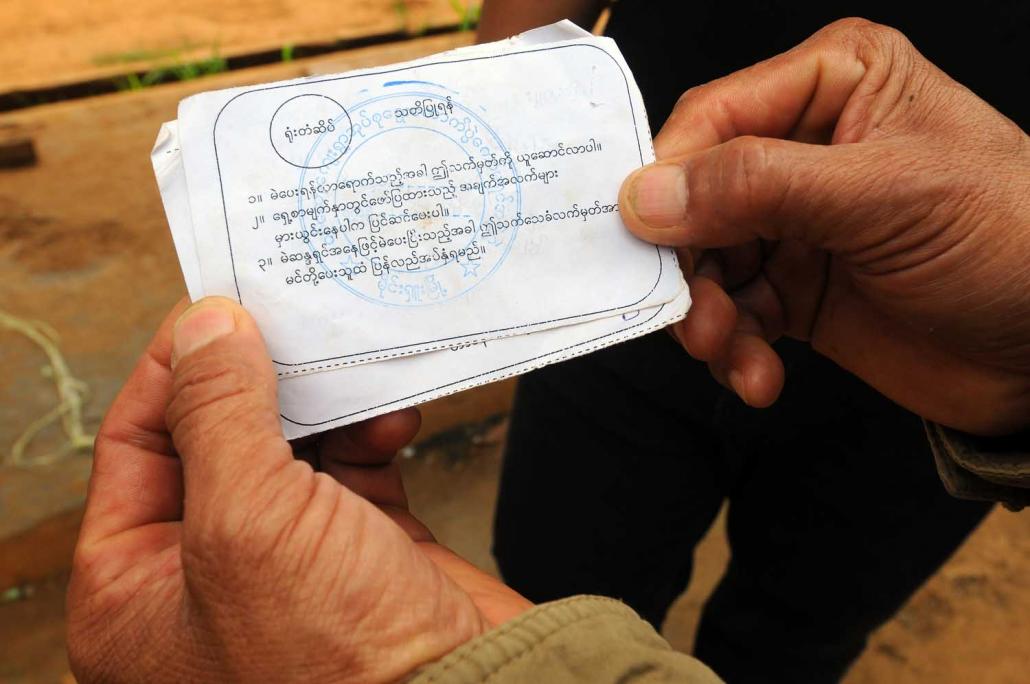 ရုံးတံဆိပ်
သတိပြုရန်
၁။ မဲပေးရန်လာရောက်သည့်အခါ ဤလက်မှတ်ကို ယူဆောင်လာပါ။
၂။ ရှေ့စာမျက်နှာတွင်ဖော်ပြထားသည့် အချက်အလက်များ
မှားယွင်းနေပါက ပြင်ဆင်ပေးပါ။
၃။ မဲဆန္ဒရှင်အနေဖြင့်မဲပေးပြီးသည့်အခါ ဤသက်သေခံလက်မှတ်အား
မင်တို့ပေးသူထံ ပြန်လည်အပ်နှံရမည်။
မိုင်းရှူးမြို့